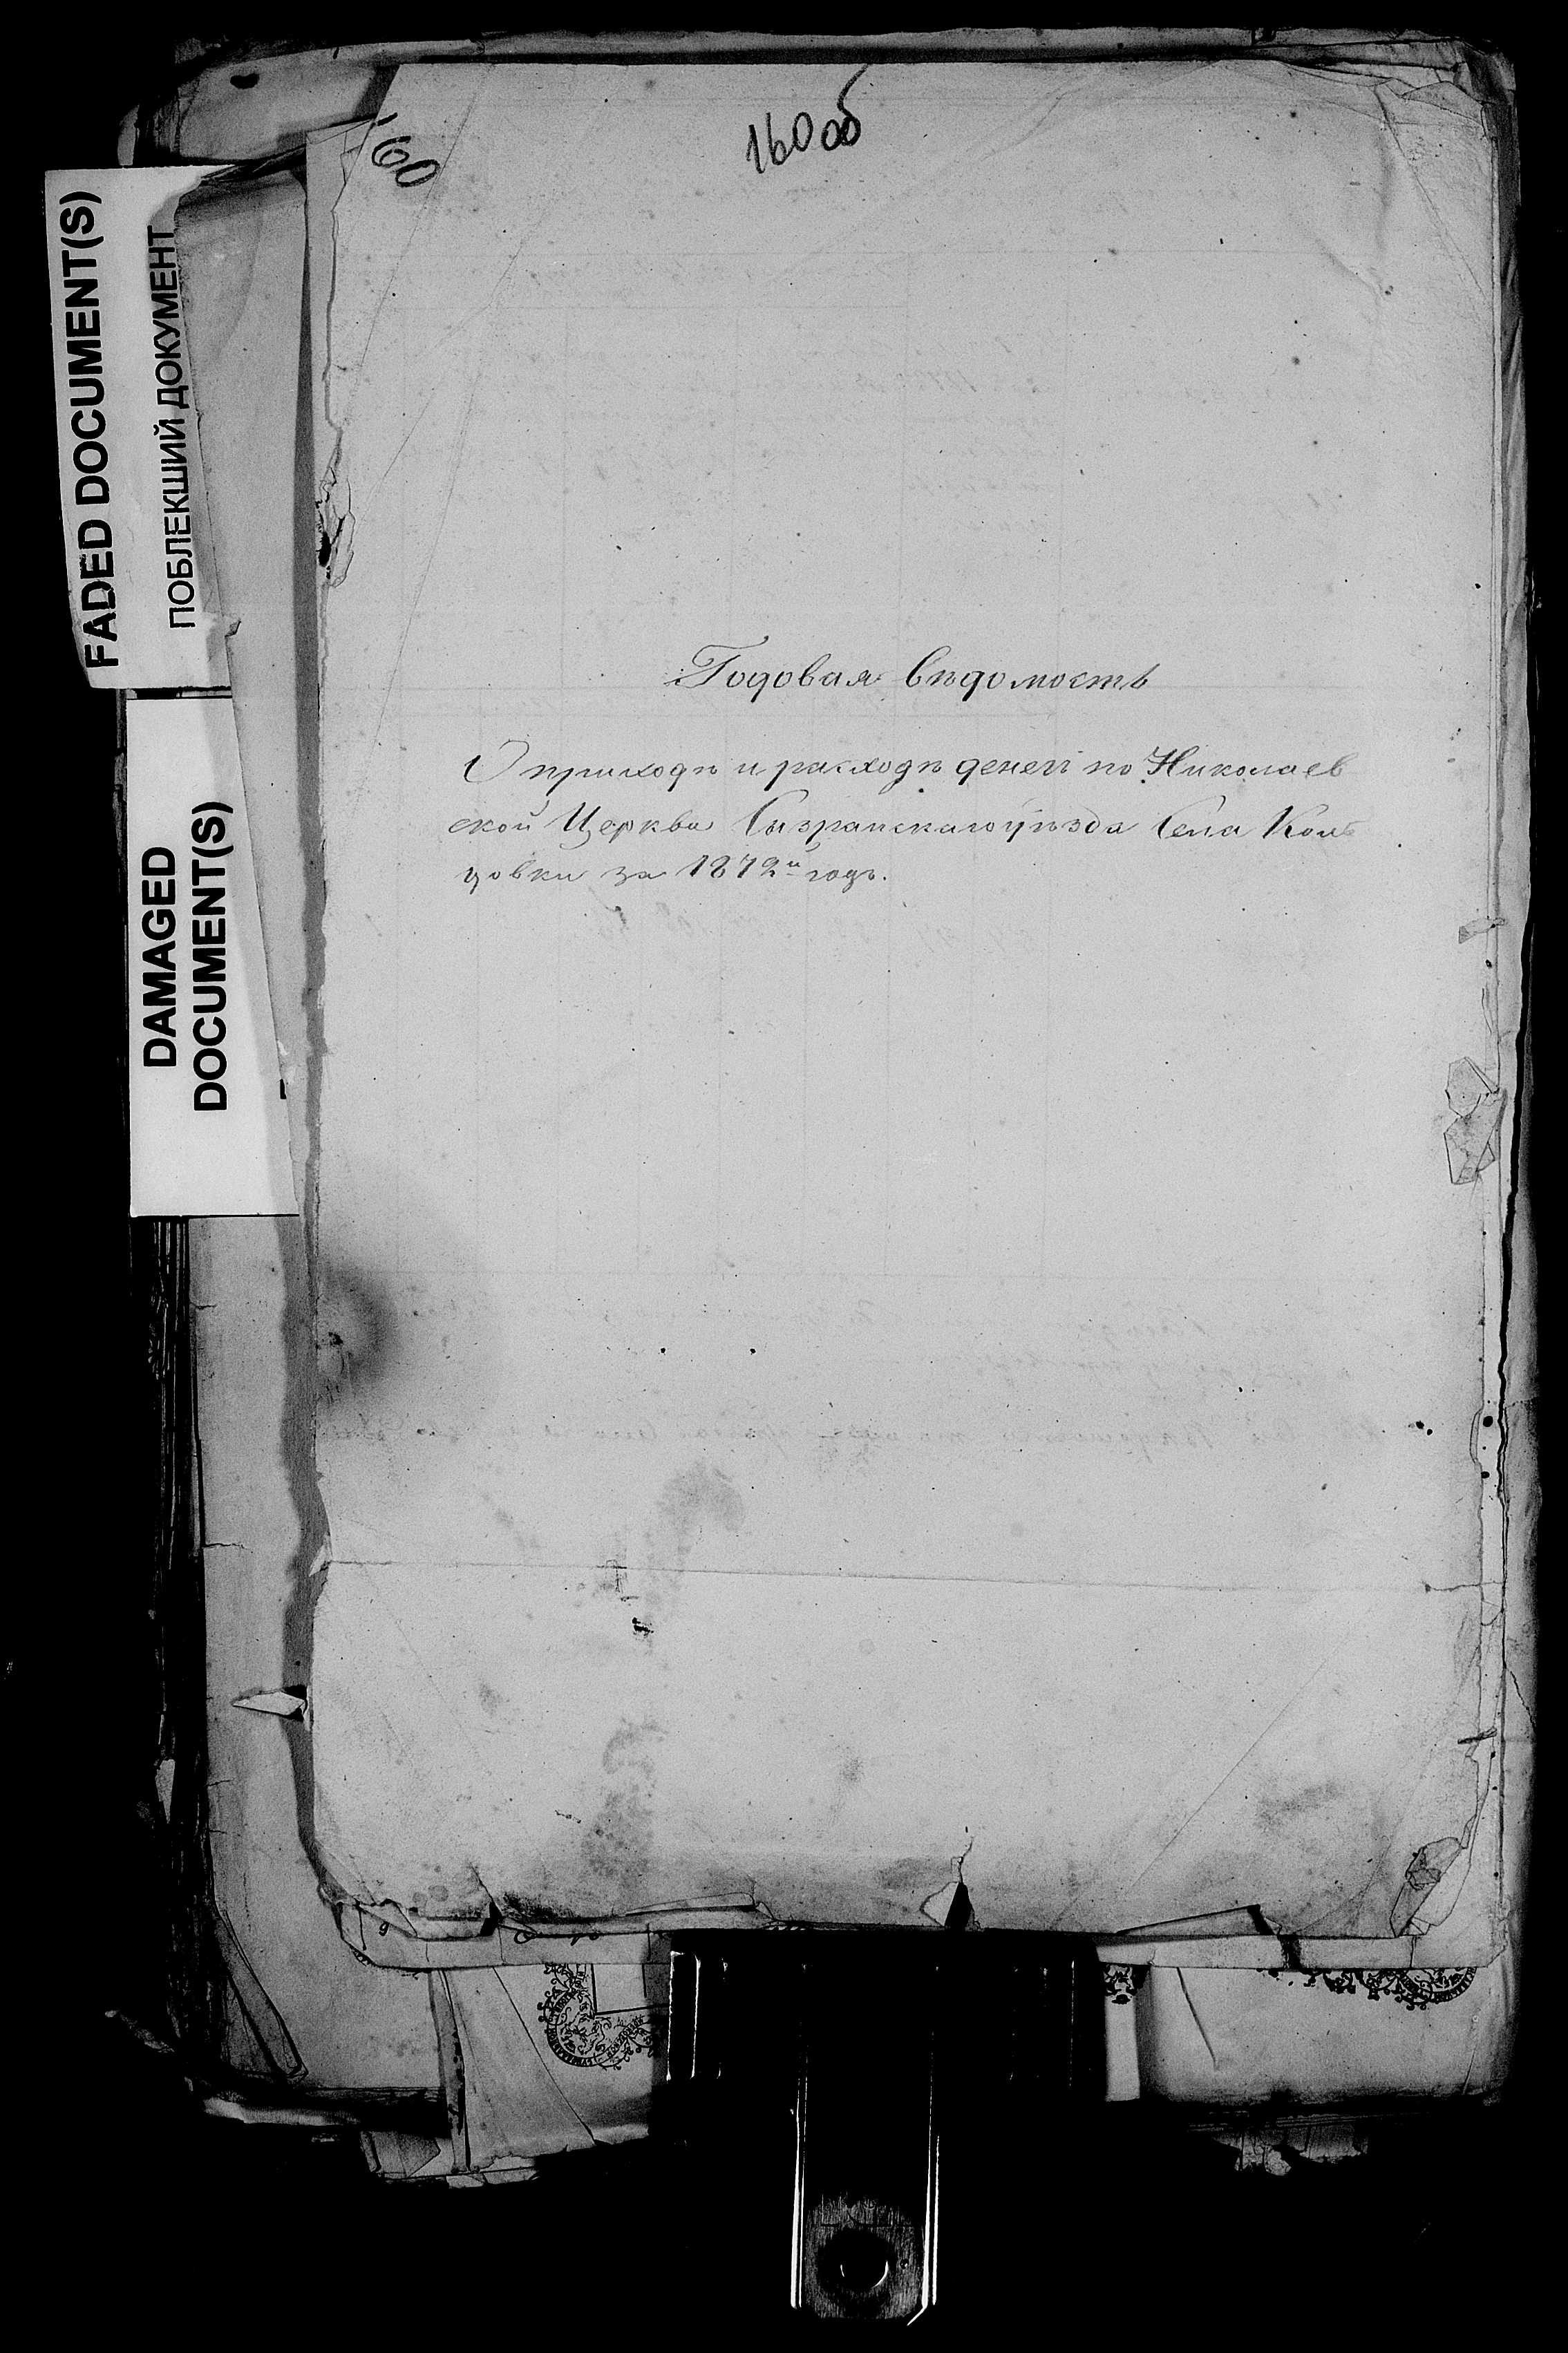 160об
160
FADED DOCUMENT(S)
ПОБЛЕКШИЙ ДОКУМЕНТ
DAMAGED
DOCUMENT(S)
Годовая вѣдомость
О приходѣ и расходѣ денегъ по Николаев
ской Церкви Сызранскаго уѣзда Села Коль
цовки за 1872й годъ.